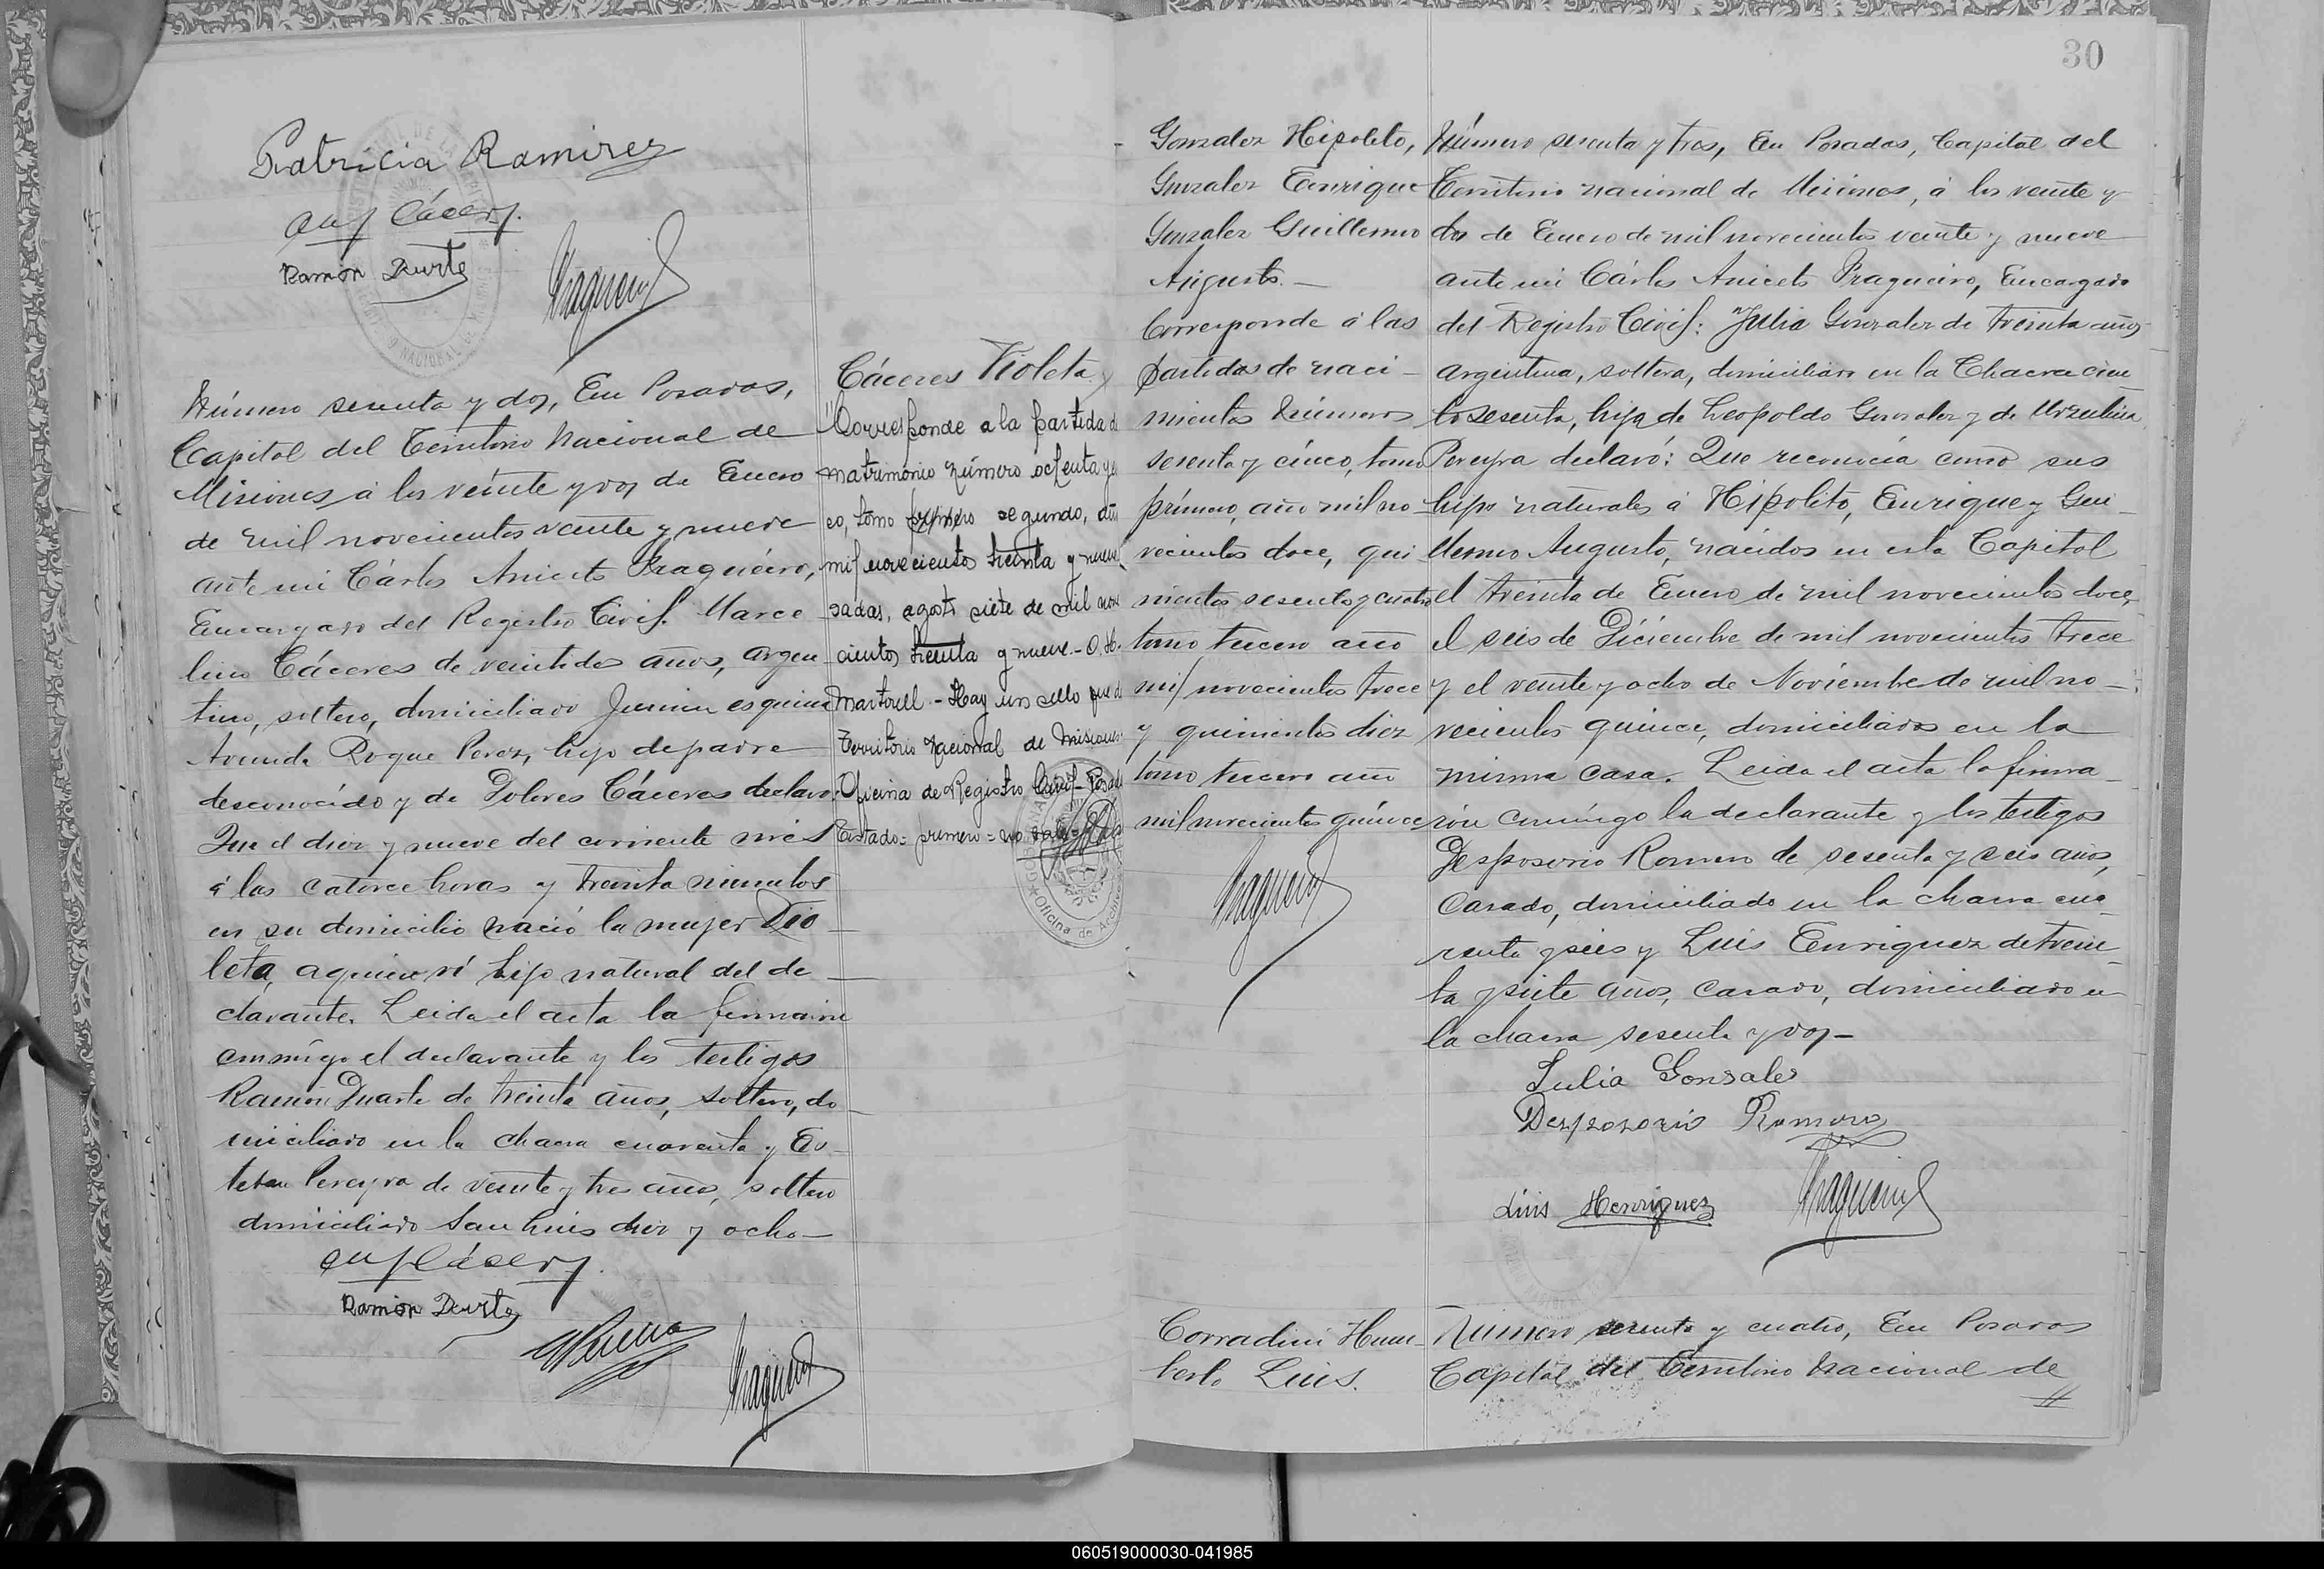 Patricia Ramirez
Ramón Duarte
Número sesenta y dos, En Posadas,
Capital del Territorio Nacional de
Misiones á los veinte y dos de Enero
de mil novecientos veinte y nueve
ante mi Cárlos Aniceto Fragueiro,
Encargado del Registro Civil. Marce
lino Cáceres de veintidos años, argen
tino, soltero, domiciliado Junin esquina
Avenida Roque Perez, hijo de padre
desconocido y de Dolores Cáceres declaró:
Que el diez y nueve del corriente mes
á las catorce horas y treinta minutos
en su domicilio nació la mujer Vio
leta, á quien ví hijo natural del de
clarante. Leida el acta la firmaron
conmigo el declarante y los testigos
Ramón Duarte de treinta años, soltero, do
miciliado en la chacra cuarenta y Es
teban Pereyra de veinte y tres años, soltero
domiciliado San Luis diez y ocho
Ramón Duarte
Cáceres Violeta
"Corresponde a la partida d
matrimonio número ochenta y
co, tomo primero segundo, añ
mil novecientos treinta y nueve
sadas, agosto siete de mil nov
cientos treinta y nueve.- O. H.
Martorell - Hay un sello que d
Territorio Nacional de Misiones
Oficina de Registro Civil - Posad
Testado = primero = no vale
Oficina de Archivo
30
Gonzalez Hipolito,
Gonzalez Enrique
Gonzalez Guillermo
Augusto.-
Corresponde á las
partidas de naci-
mientos Números
sesenta y cinco, tomo
primero, año mil no-
vecientos doce, qui
nientos sesenta y cuatro
tomo tercero año
mil novecientos trece
y quinientos diez
tomo tercero año
mil novecientos quince
Número sesenta y tres, En Posadas, Capital del
Territorio nacional de Misiones, á los veinte y
dos de Enero de mil novecientos veinte y nueve
ante mi Cárlos Aniceto Fragueiro, Encargado
del Registro Civil: Julia Gonzalez de treinta años
argentina, soltera, domiciliada en la Chacra cien
to sesenta, hija de Leopoldo Gonzalez y de Urzulina
Pereyra declaró: Que reconocía como sus
hijos naturales á Hipolito, Enrique y Gui-
llermo Augusto, nacidos en esta Capital
el treinta de Enero de mil novecientos doce,
el seis de Diciembre de mil novecientos trece
y el veinte y ocho de Noviembre de mil no-
vecientos quince, domiciliados en la
misma casa. Leida el acta la firma-
rón conmígo la declarante y los testigos
Desposorio Romero de sesenta y seis años,
casado, domiciliado en la chacra cua-
renta y seis y Luis Enriquez de trein-
ta y siete años, casado, domiciliado en
la chacra sesenta y dos-
Julia Gonzales
Desposorio Romero
Luis Henriquez
Corradini Hum-
berto Luis.
Número sesenta y cuatro, En Posadas
Capital del Territorio Nacional de
060519000030-041985